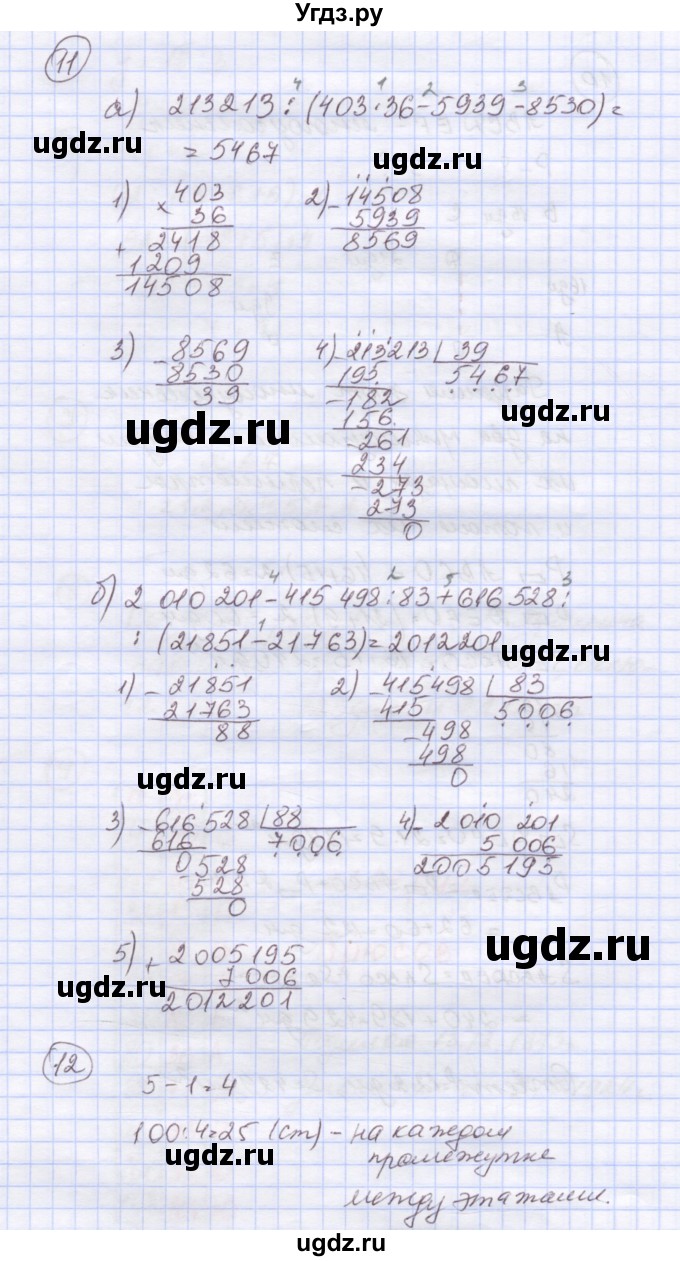 Угдз.ру
11
4 1 2 3
а) 213213 : (403·36-5939-8530)=
ugdz.ru
ugdz.ru
= 5467
1) × 403
36
+ 2418
1209
14508
2) - 14508
5939
8569
3) - 8569
8530
39
4) - 213213 | 39
195 5467
- 182
156
- 261
234
- 273
273
0
ugdz.ru
ugdz.ru
4 2 5 3
б) 2 010 201 - 415 498 : 83 + 616 528 :
1
: (21851 - 21763) = 2012201
ugdz.ru
1) - 21851
21763
88
2) - 415498 | 83
415 5006
- 498
498
0
ugdz.ru
3) - 616 528 | 88
616 7006
0 528
- 528
0
4) - 2 010 201
5 006
2005195
5) + 2005195
7 006
2012201
ugdz.ru
ugdz.ru
12
5 - 1 = 4
100:4=25 (ст) - на каждом
промежутке
ugdz.ru
между этажами.
ugdz.ru